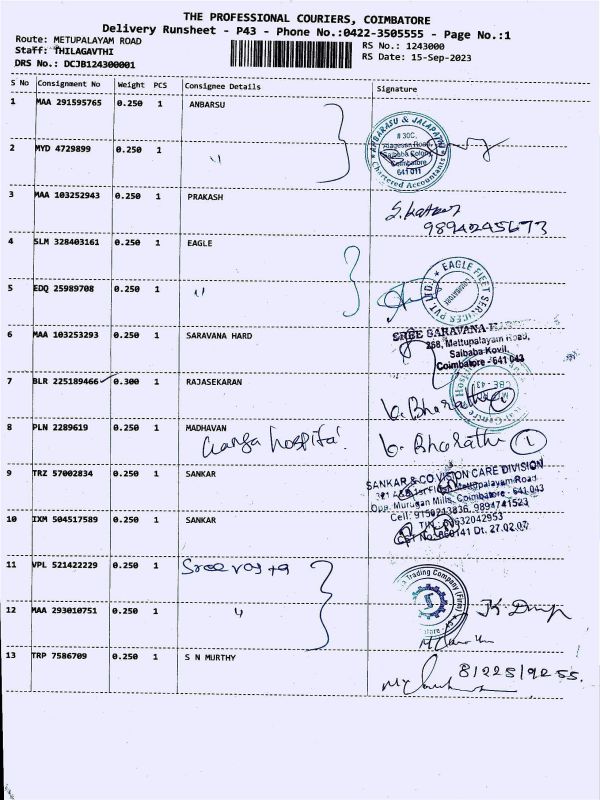 THE PROFESSIONAL COURIERS, COIMBATORE
Delivery Runsheet - P43 - Phone No.:0422-3505555 - Page No.:1
Route: METUPALAYAM ROAD
RS No.: 1243000
Staff: THILAGAVTHI
RS Date: 15-Sep-2023
DRS No.: DCJB124300001
S No Consignment No Weight PCS Consignee Details Signature
1 MAA 291595765 0.250 1 ANBARSU
ANBARASU & JALAPATHI
# 30C,
Saibaba Colony,
Coimbatore
641 011
Chartered Accountants
2 MYD 4729899 0.250 1 "
3 MAA 103252943 0.250 1 PRAKASH
9894245673
4 SLM 328403161 0.250 1 EAGLE
EAGLE FLEET SERVICES PVT LTD
COIMBATORE
5 EDQ 25989708 0.250 1 "
6 MAA 103253293 0.250 1 SARAVANA HARD
SREE SARAVANA
268, Mettupalayam Road,
Saibaba Kovil,
Coimbatore - 641 043
7 BLR 225189466 0.300 1 RAJASEKARAN
b. Bharathi 2
8 PLN 2289619 0.250 1 MADHAVAN
Ganga hospital
b. Bharathi 1
9 TRZ 57002834 0.250 1 SANKAR
SANKAR & CO VISION CARE DIVISION
1st Floor Mettupalayam Road
Opp. Murugan Mills, Coimbatore - 641 043
Cell: 9150213836, 9894741523
10 IXM 504517589 0.250 1 SANKAR
Dt. 27.02.07
11 VPL 521422229 0.250 1
Trading Company (Firm)
12 MAA 293010751 0.250 1 "
13 TRP 7586709 0.250 1 S N MURTHY